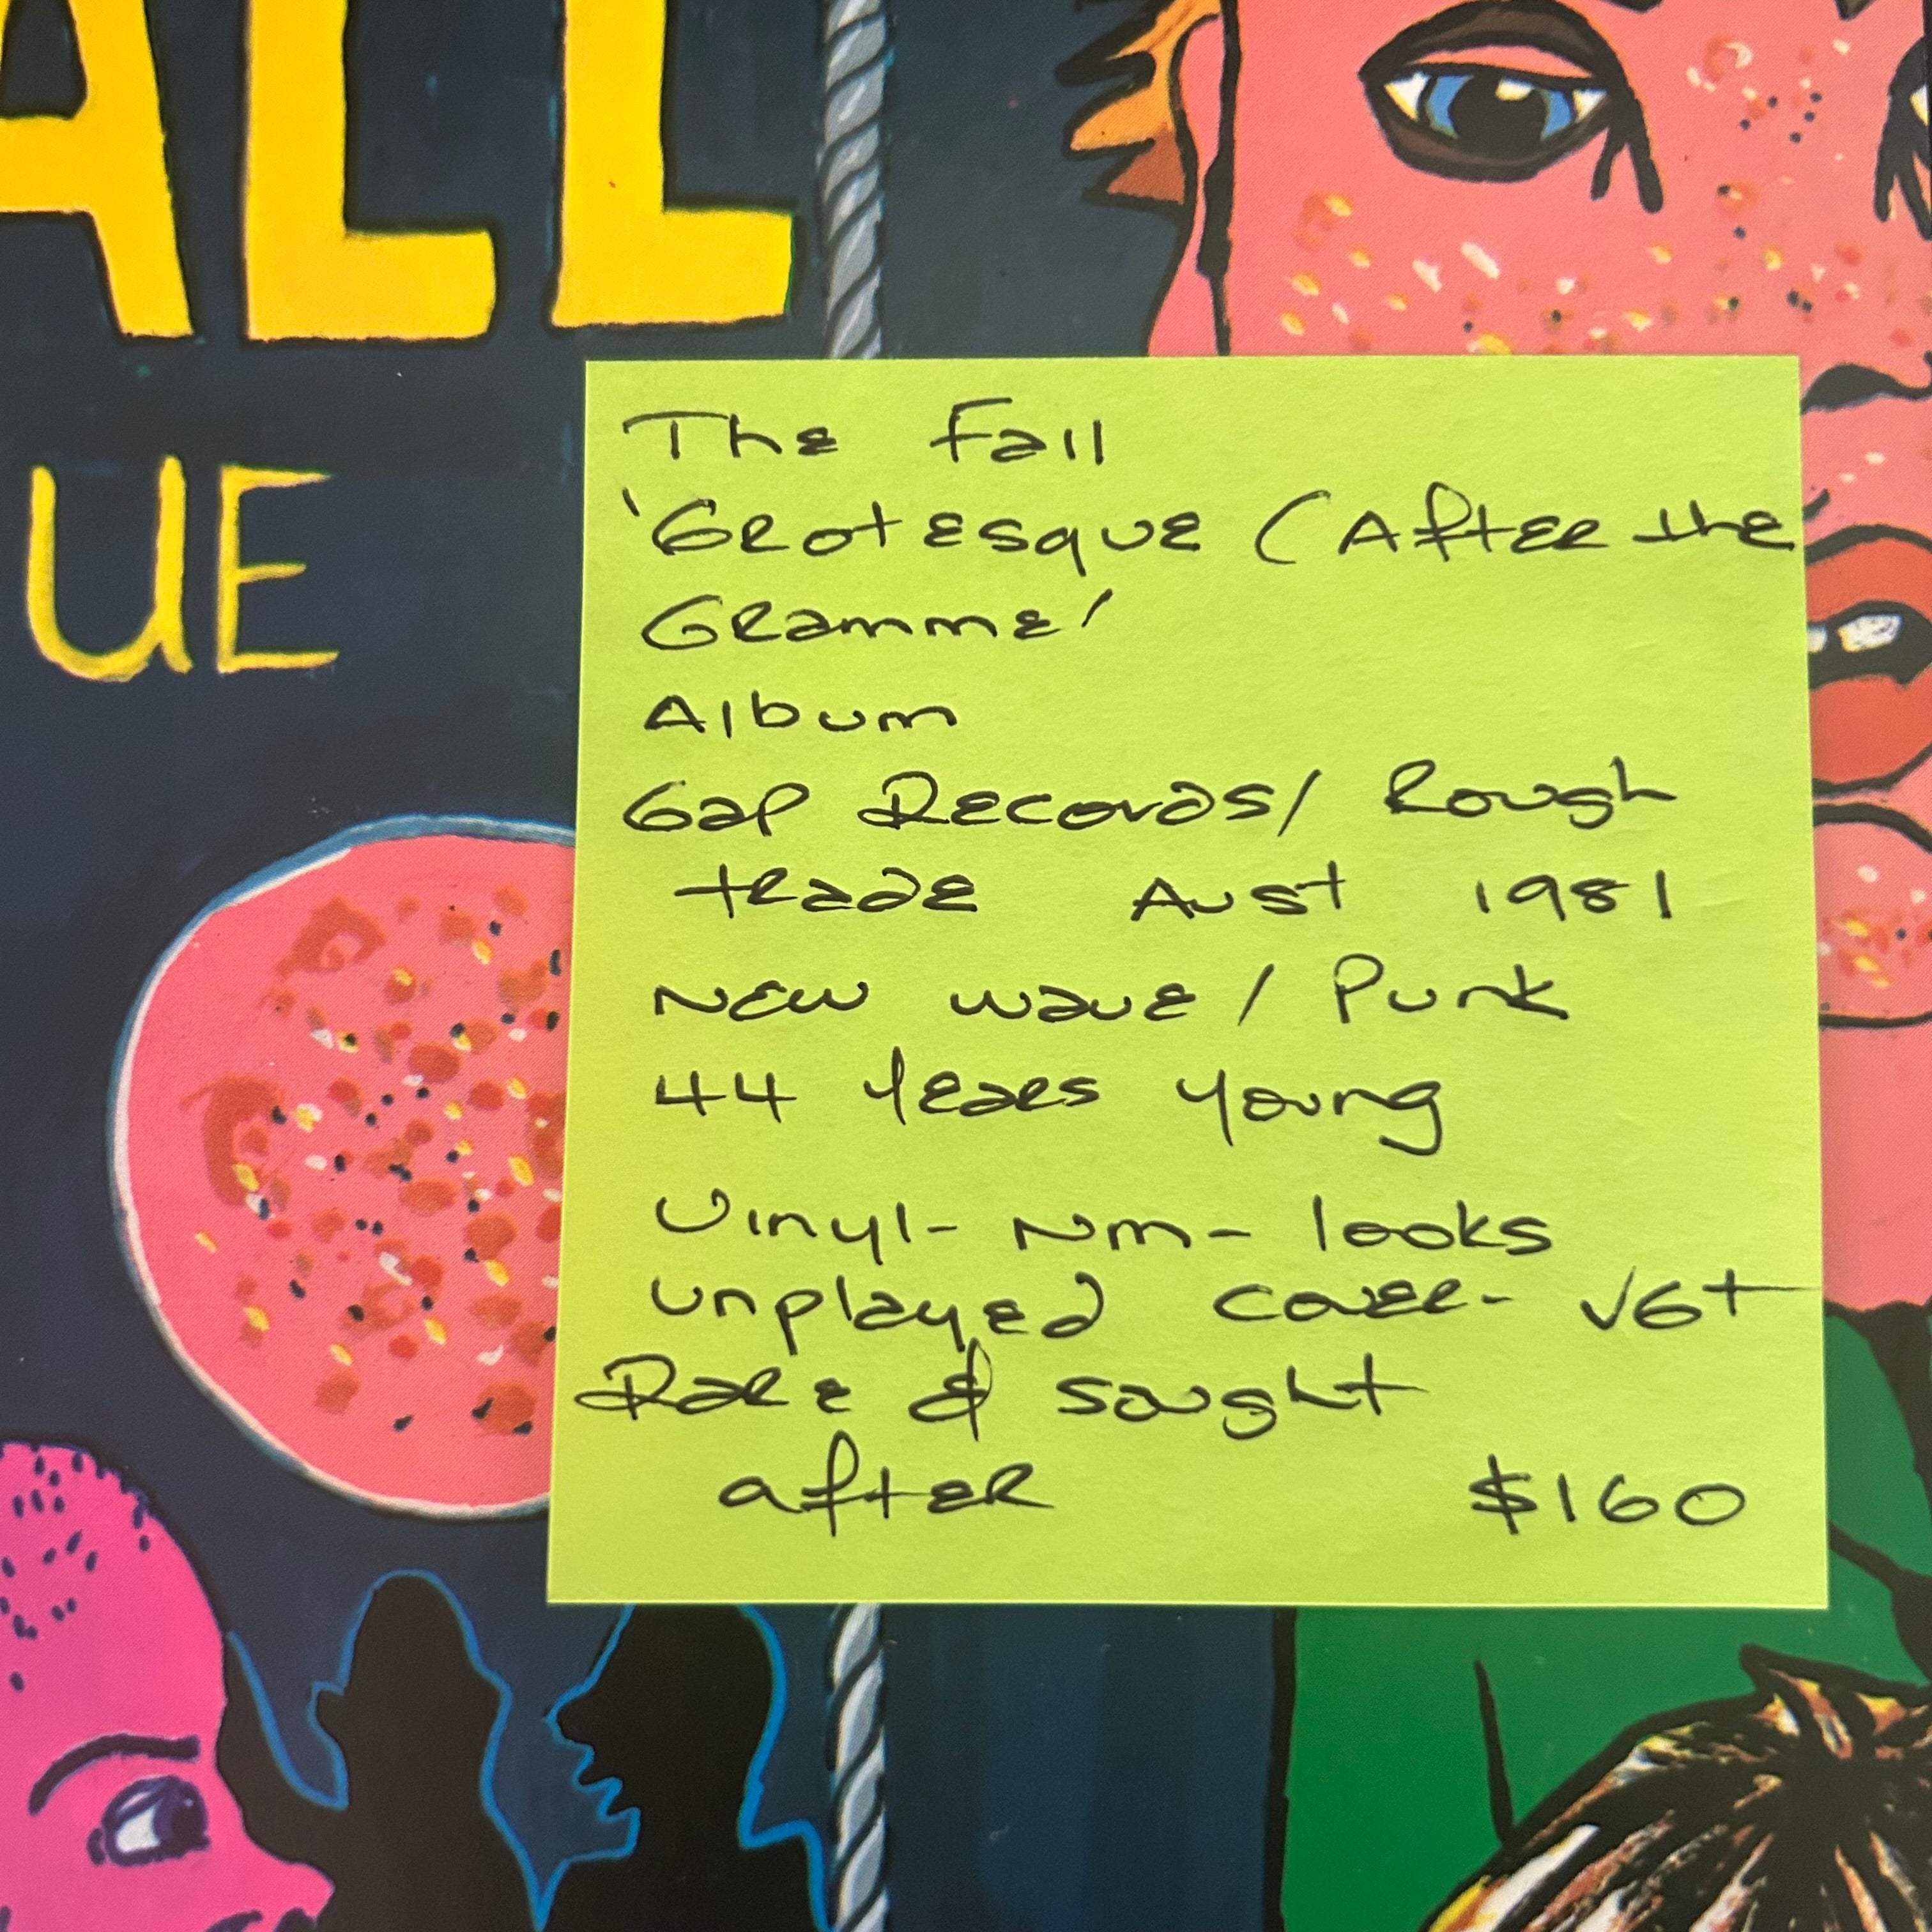 ALL
UE
The Fall
'Grotesque (After the
Gramme'
Album
Gap Records/ Rough
trade Aust 1981
New wave / Punk
44 years young
Vinyl- NM- looks
unplayed cover- VG+
Rare & sought
after $160